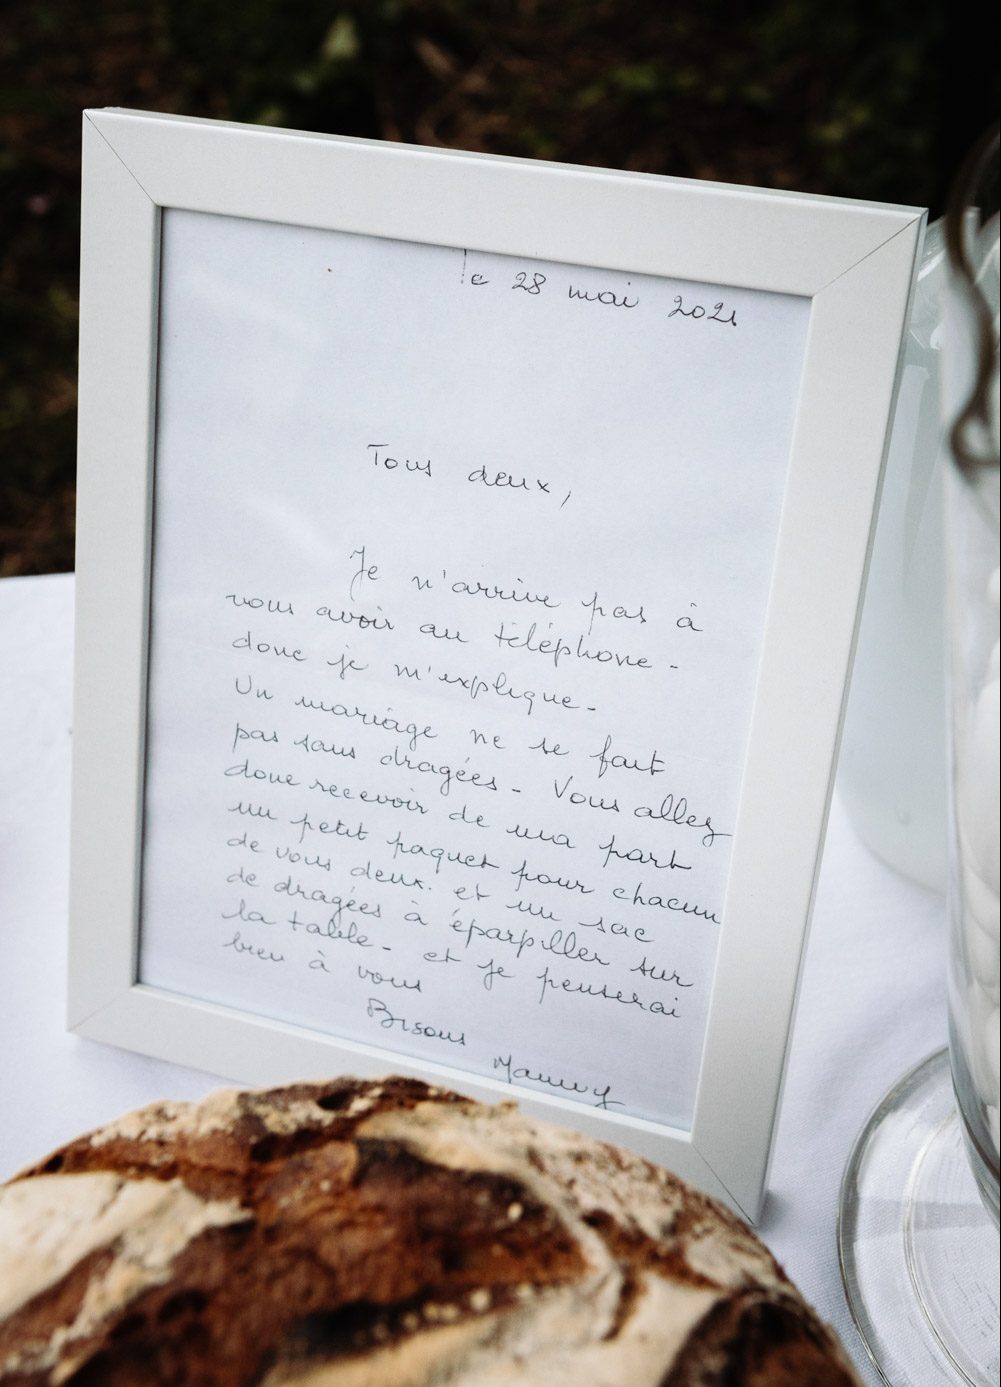 le 28 mai 2021
Tous deux,
Je n'arrive pas à
vous avoir au téléphone -
donc je m'explique -
Un mariage ne se fait
pas sans dragées - Vous allez
donc recevoir de ma part
un petit paquet pour chacun
de vous deux. et un sac
de dragées à éparpiller sur
la table - et je penserai
bien à vous
Bisous Mamy